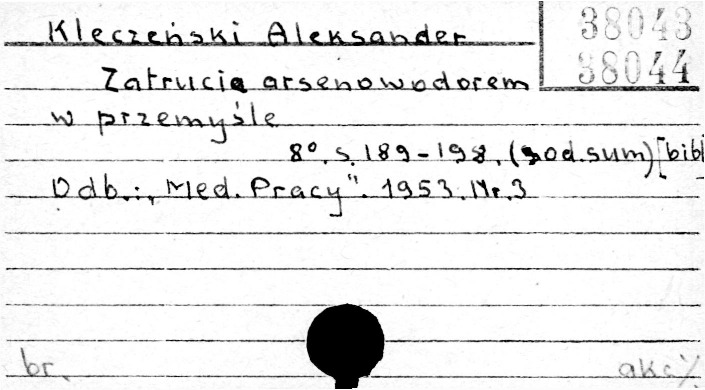 Kleczeński Aleksander
38043
38044
Zatrucia arsenowodorem
w przemyśle
8°. s. 189-198. (rod.sum) [bibl
Odb.: „Med. Pracy". 1953. Nr. 3
br.
akc